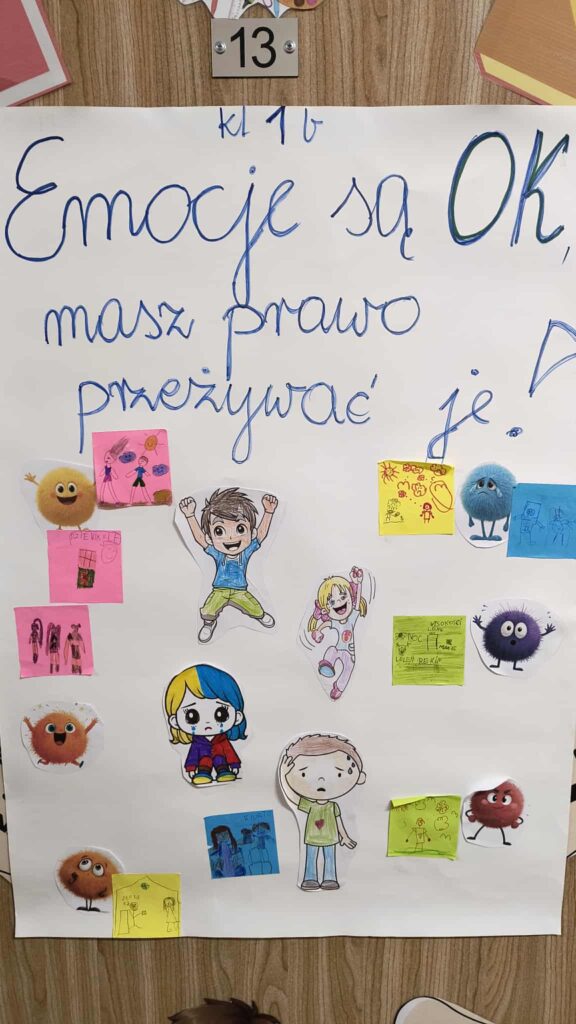 13
kl 1 b
Emocje są OK,
masz prawo
przeżywać je.